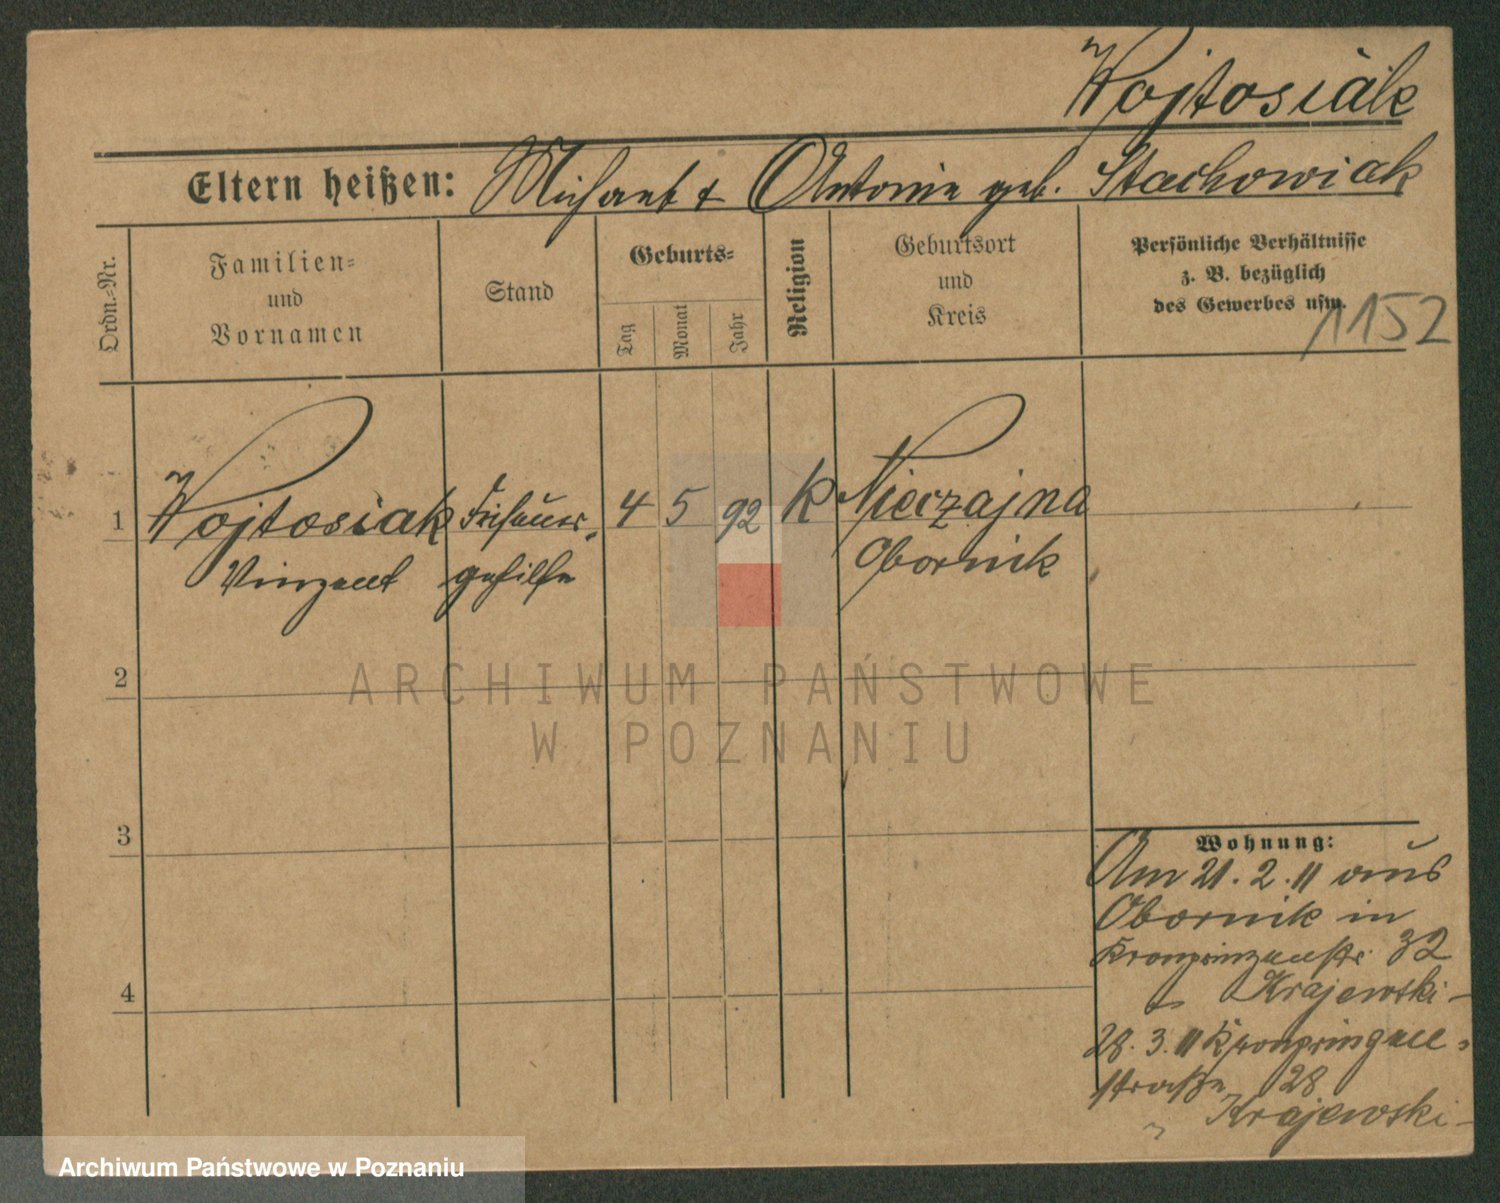 Wojtosiak
Eltern heißen: Michael & Antonie geb. Stachowiak
Ordn.-Nr.
Familien-
und
Vornamen
Stand
Geburts-
Tag
Monat
Jahr
Religion
Geburtsort
und
Kreis
Persönliche Verhältnisse
z. B. bezüglich
des Gewerbes usw.
1152
1 Wojtosiak Friseur- 4 5 92 K Nieczajna
Vinzent gehilfe Obornik
2
3
4
Wohnung:
Am 21.2.11 aus
Obornik in
Kronprinzenstr. 32
Krajewski-
28.3.11 Kronprinzen-
straße 28
Krajewski-
ARCHIWUM PAŃSTWOWE
W POZNANIU
Archiwum Państwowe w Poznaniu